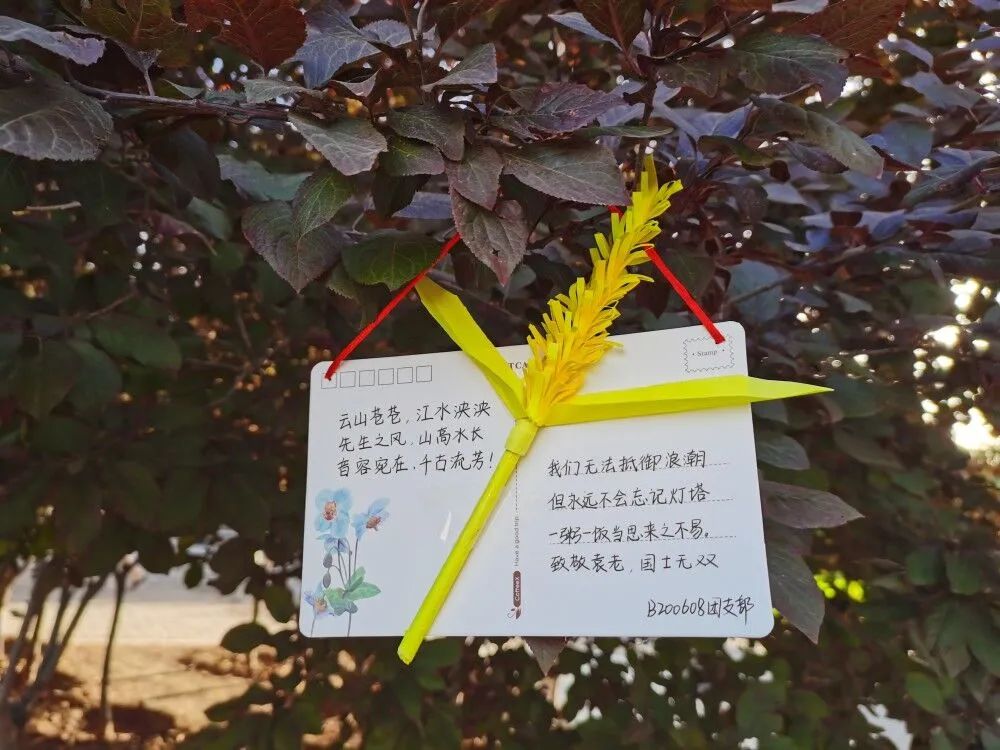 Stamp
云山苍苍，江水泱泱
先生之风，山高水长
音容宛在，千古流芳！
我们无法抵御浪潮
但永远不会忘记灯塔
一粥一饭当思来之不易。
致敬袁老，国士无双
B200608团支部
Have a good trip